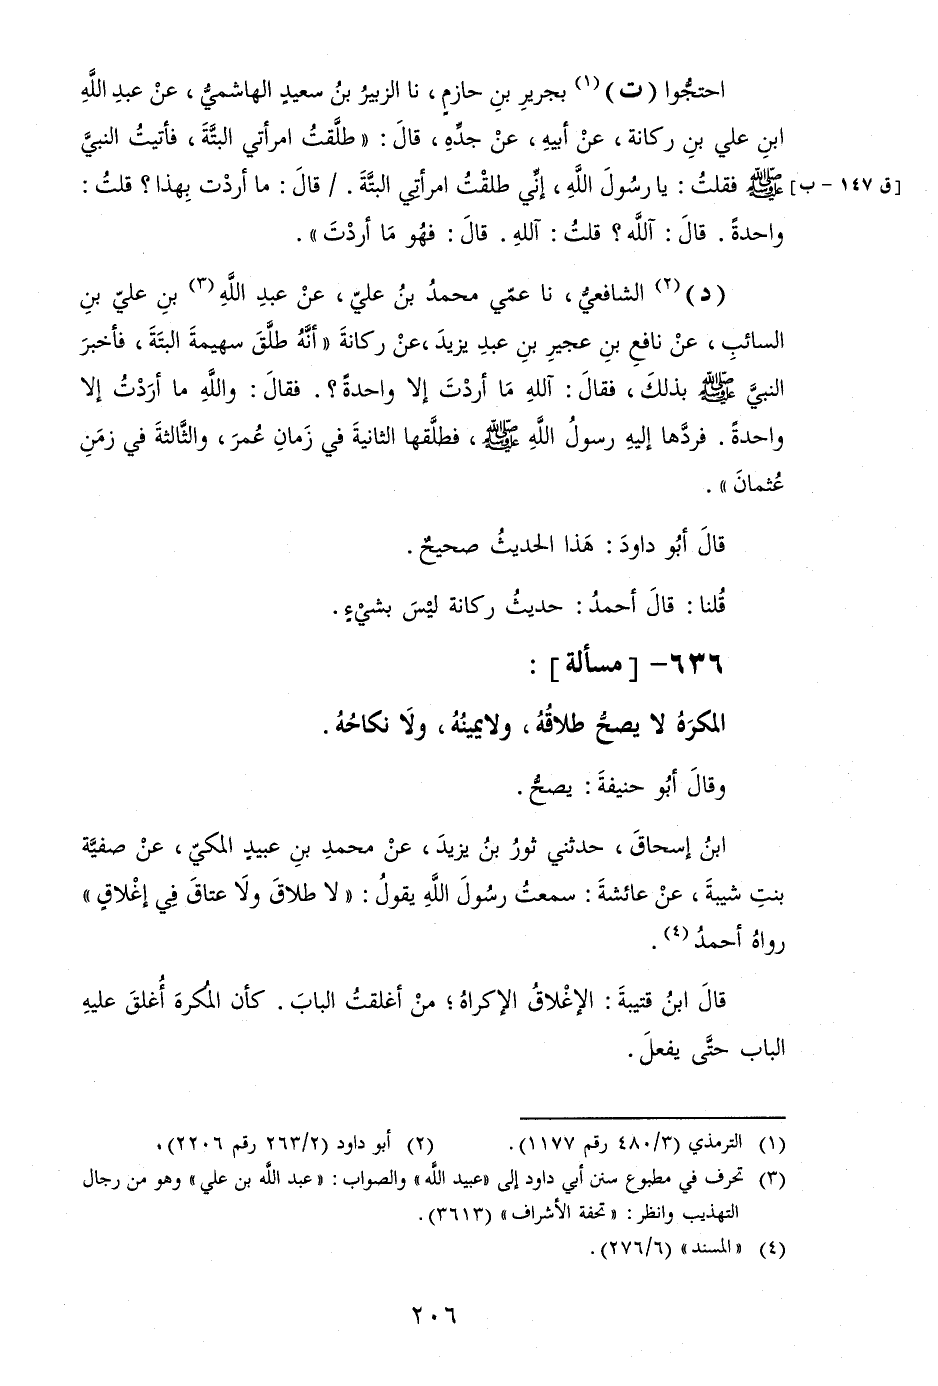 احتجُّوا (ت)(١) بجريرِ بنِ حازمٍ ، نا الزبيرُ بنُ سعيدٍ الهاشميُّ ، عنْ عبدِ اللَّهِ
ابنِ علي بنِ ركانة ، عنْ أبيهِ ، عنْ جدِّهِ ، قالَ : « طلَّقتُ امرأتي البتَّةَ ، فأتيتُ النبيَّ
ﷺ فقلتُ : يا رسُولَ اللَّهِ ، إنِّي طلقْتُ امرأتِي البتَّةَ . / قالَ : ما أردْت بِهذا ؟ قلتُ : [ق ١٤٧ - ب]
واحدةً . قالَ : آللَّه ؟ قلتُ : آللهِ . قالَ : فهُو مَا أردْتَ » .
(د)(٢) الشافعيُّ ، نا عمّي محمدُ بنُ عليّ ، عنْ عبدِ اللَّهِ(٣) بنِ عليّ بنِ
السائبِ ، عنْ نافعِ بنِ عجيرِ بنِ عبدِ يزيدَ ،عنْ ركانةَ « أنَّهُ طلَّقَ سهيمةَ البتةَ ، فأخبرَ
النبيَّ ﷺ بذلكَ ، فقالَ : آللهِ مَا أردْتَ إلا واحدةً ؟ . فقالَ : واللَّهِ ما أرَدْتُ إلا
واحدةً . فردَّها إليهِ رسولُ اللَّهِ ﷺ ، فطلَّقها الثانيةَ في زَمانِ عُمرَ ، والثَّالثةَ في زمَنِ
عُثمانَ » .
قالَ أبُو داودَ : هَذا الحديثُ صحيحٌ .
قُلنا : قالَ أحمدُ : حديثُ ركانة ليْسَ بشيْءٍ .
٦٣٦- [ مسألة ] :
المكرَهُ لا يصحُّ طلاقُهُ ، ولايمينُهُ ، ولَا نكاحُهُ .
وقالَ أبُو حنيفةَ : يصحُّ .
ابنُ إسحاقَ ، حدثني ثورُ بنُ يزيدَ ، عنْ محمدِ بنِ عبيدٍ المكيّ ، عنْ صفيَّة
بنتِ شيبةَ ، عنْ عائشةَ : سمعتُ رسُولَ اللَّهِ يقولُ : « لا طلاقَ ولَا عتاقَ فِي إغْلاقٍ »
رواهُ أحمدُ(٤) .
قالَ ابنُ قتيبةَ : الإغْلاقُ الإكراهُ ؛ منْ أغلقتُ البابَ . كأن المُكرهَ أُغلقَ عليهِ
الباب حتَّى يفعلَ .
(١) الترمذي (٤٨٠/٣ رقم ١١٧٧). (٢) أبو داود (٢٦٣/٢ رقم ٢٢٠٦).
(٣) تحرف في مطبوع سنن أبي داود إلى «عبيد اللَّه» والصواب : «عبد اللَّه بن علي» وهو من رجال
التهذيب وانظر : «تحفة الأشراف» (٣٦١٣).
(٤) «المسند» (٢٧٦/٦).
٢٠٦